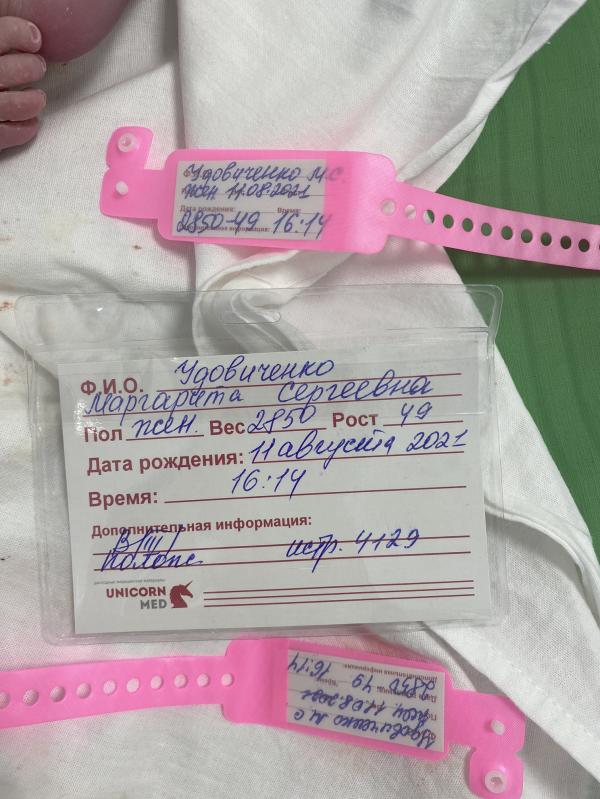 Удовиченко М.С.
жен 11.08.2021
Дата рождения: Время:
2850-49 16:14
информация:
Ф.И.О. Удовиченко
Маргарита Сергеевна
Пол жен. Вес 2850 Рост 49
Дата рождения: 11 августа 2021
Время: 16:14
Дополнительная информация:
ист. 4129
UNICORN
MED
Удовиченко М.С
жен 11.08.2021
2850-49 16:14